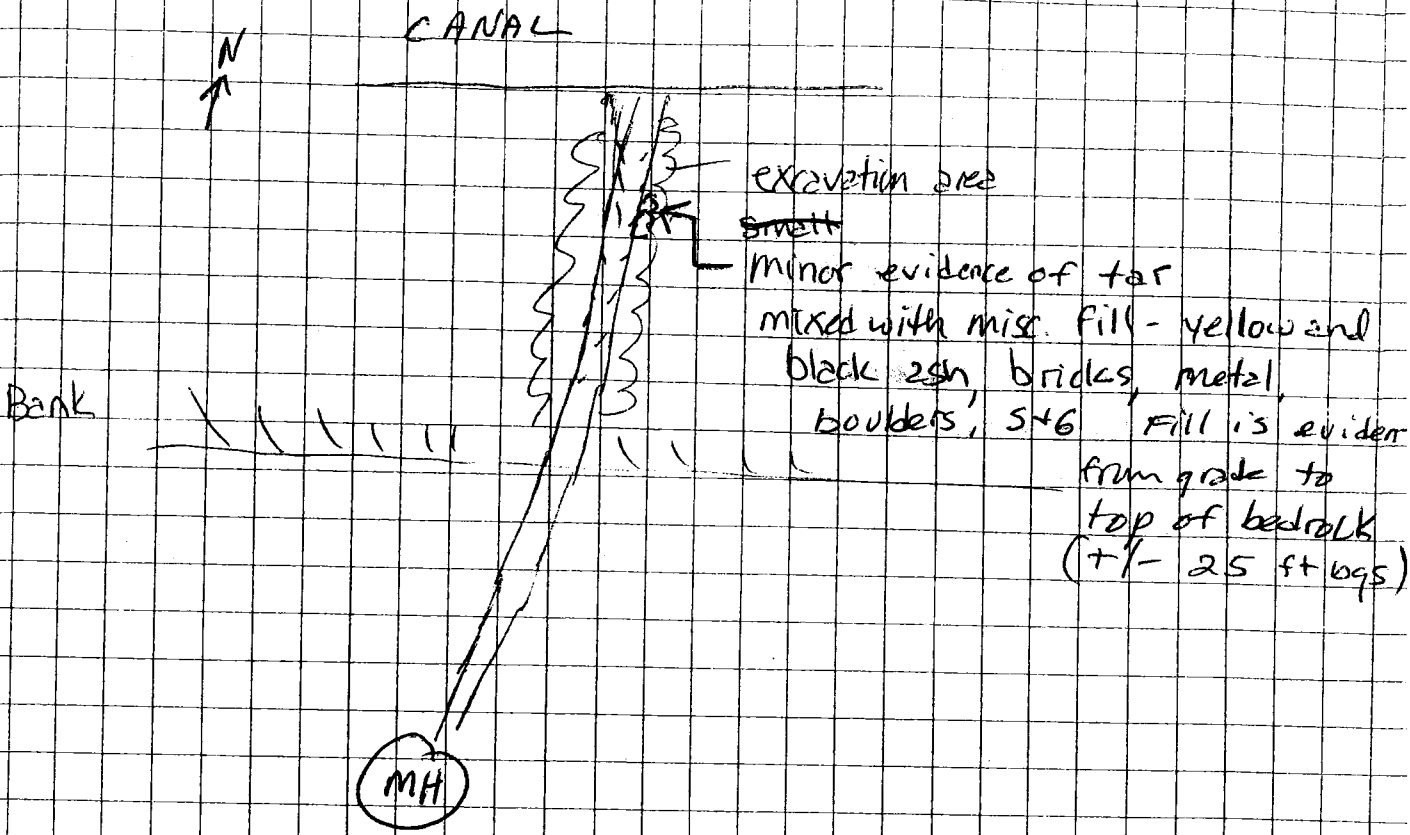 CANAL
N
excavation area
small
minor evidence of tar
mixed with misc. fill - yellow and
black ash, bricks, metal,
Bank
boulders, S+G Fill is eviden
from grade to
top of bedrock
(+/- 25 ft bgs)
MH